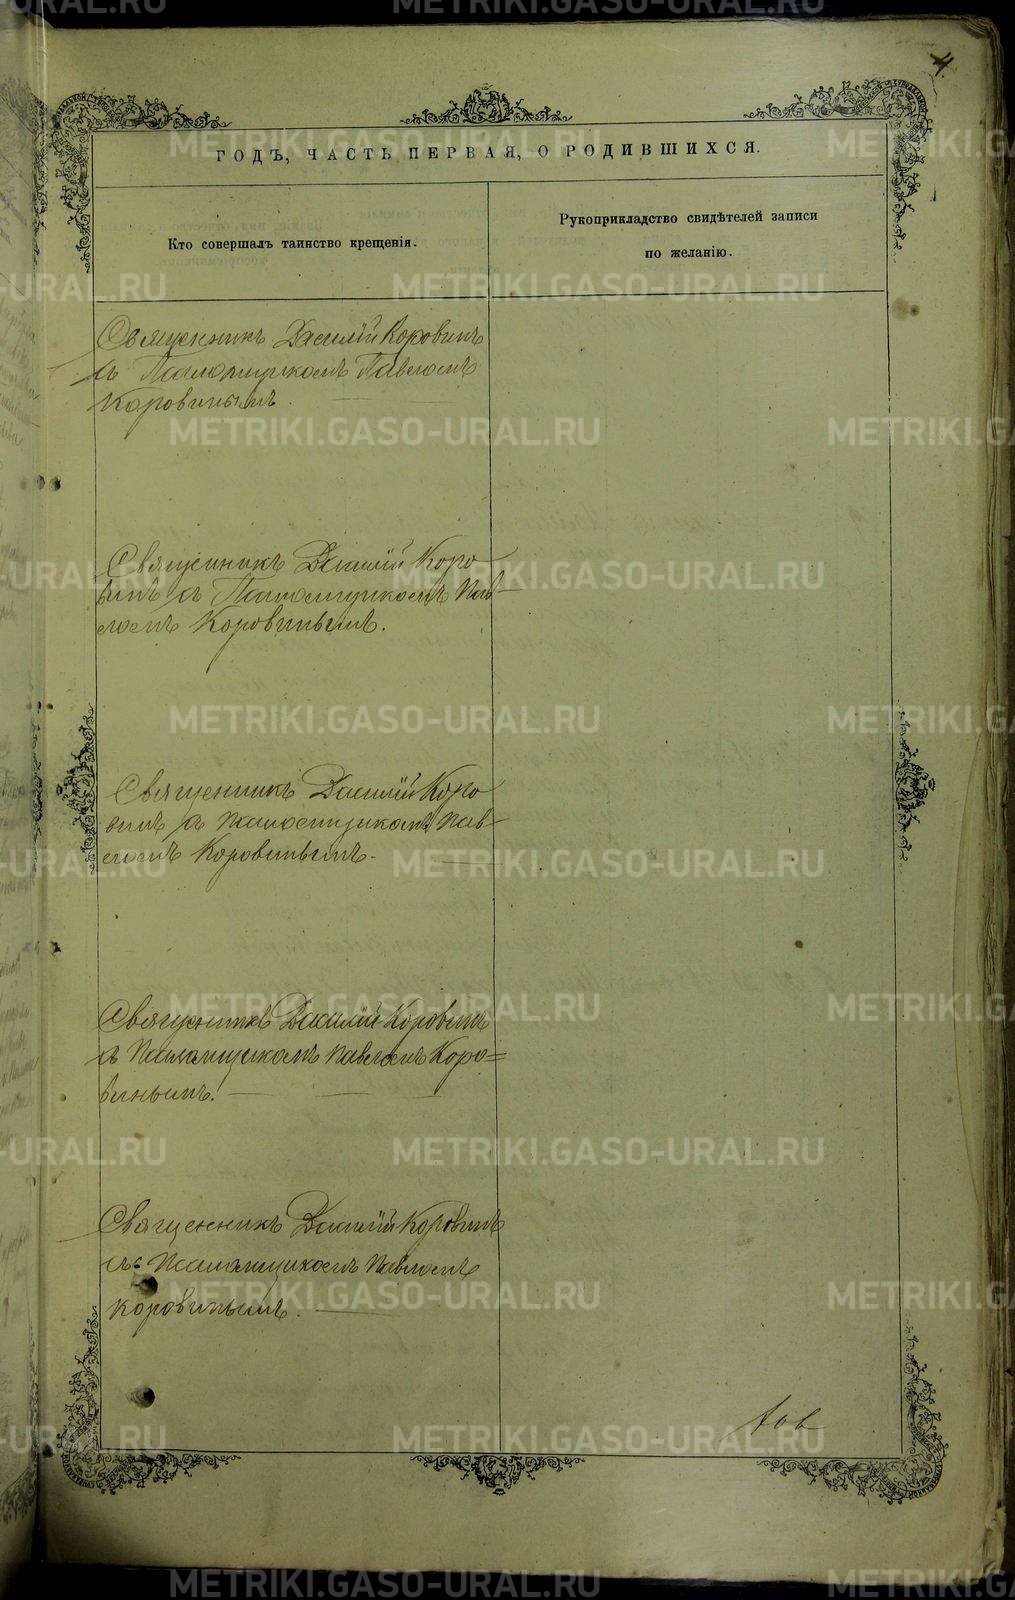 4.
ГОДЪ, ЧАСТЬ ПЕРВАЯ, О РОДИВШИХСЯ.
Кто совершалъ таинство крещенія.
Рукоприкладство свидѣтелей записи
по желанію.
Священникъ Василій Коровинъ
съ Псаломщикомъ Павломъ
Коровинымъ.
Священникъ Василій Коро
винъ съ Псаломщикомъ Пав-
ломъ Коровинымъ.
Священникъ Василій Коро
винъ съ Псаломщикомъ Пав-
ломъ Коровинымъ.
Священникъ Василій Коровинъ
съ Псаломщикомъ Павломъ Коро=
винымъ.
Священникъ Василій Коровинъ
съ Псаломщикомъ Павломъ
Коровинымъ.
METRIKI.GASO-URAL.RU